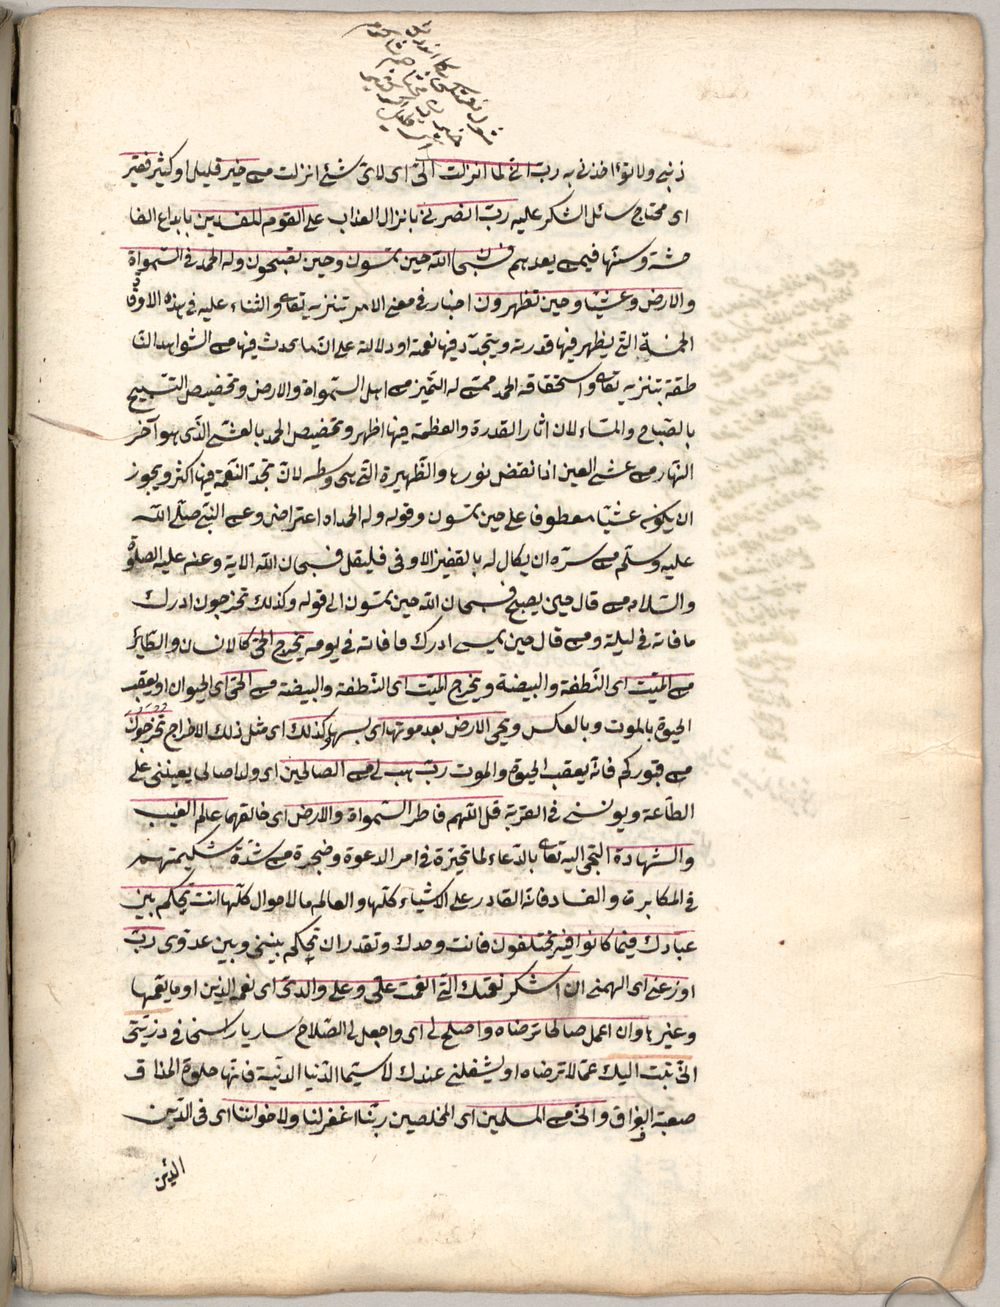 ذنبى ولا تؤاخذنى به رب انى لما انزلت الى اى لاى شئ انزلت من خير قليل او كثير فقير
اى محتاج سائل الشكر عليه رب انصرنى بانزال العذاب على القوم المفسدين بابداع الفا
حشة وسنها فيمن بعدهم فسبحان الله حين تمسون وحين تصبحون وله الحمد فى السمواة
والارض وعشيا وحين تظهرون اخبار فى معنى الامر بتنزيه تعالى والثناء عليه فى هذه الاوقا
الخمسة التى يظهر فيها قدرته ويتجدد فيها نعمته او دلالة على ان ما يحدث فيها من الشواهد النا
طقة بتنزيه تعالى واستحقاقه الحمد ممن له التميز من اهل السمواة والارض وتخصيص التسبيح
بالصباح والمساء لان اثار القدرة والعظمة فيها اظهر وتخصيص الحمد بالعشى الذى هو آخر
النهار من عشى العين اذا نقص نورها والظهيرة التى هى وسطه لان تجدد النعمة فيها اكثر ويجوز
ان يكون عشيا معطوفا على حين تمسون وقوله وله الحمد اه اعتراض وعن النبى صلى الله
عليه وسلم من سره ان يكال له بالقفيز الاوفى فليقل فسبحان الله الاية وعنه عليه الصلوة
والسلام من قال حين يصبح فسبحان الله حين تمسون الى قوله وكذلك تخرجون ادرك
ما فاته فى ليلة ومن قال حين يمسى ادرك ما فاته فى يومه يخرج الحى كالانسان والطائر
من الميت اى النطفة والبيضة ويخرج الميت اى النطفة والبيضة من الحى اى الحيوان او يعقب
الحيوة بالموت وبالعكس ويحى الارض بعد موتها اى يبسها وكذلك اى مثل ذلك الاخراج تخرجون
من قبوركم فانه يعقب الحيوة والموت رب هب لى من الصالحين اى ولدا صالحا يعيننى على
الطاعة ويونسنى فى الغربة قل اللهم فاطر السمواة والارض اى خالقهما عالم الغيب
والشهادة التجى اليه تعالى بالدعاء لما تحيرة فى امر الدعوة وضجرة من شدة شكيمتهم
فى المكابرة والعناد فانه القادر على الاشياء كلها والعالم بالاحوال كلها انت تحكم بين
عبادك فيما كانوا فيه يختلفون فانت وحدك وتقدر ان تحكم بينى وبين عدوى رب
اوزعنى اى الهمنى ان اشكر نعمتك التى انعمت على وعلى والدى اى نعم الدين او ما يعمها
وغيرها وان اعمل صالحا ترضاه واصلح لى اى واجعل لى الصلاح ساريا راسخا فى ذريتى
انى تبت اليك عما لا ترضاه او يشغلنى عندك لا سيما الدنيا الدنية فانها حلوة المذاق
صعبة الفراق وانى من المسلمين اى المخلصين ربنا اغفر لنا ولاخواننا اى فى الدين
الدين